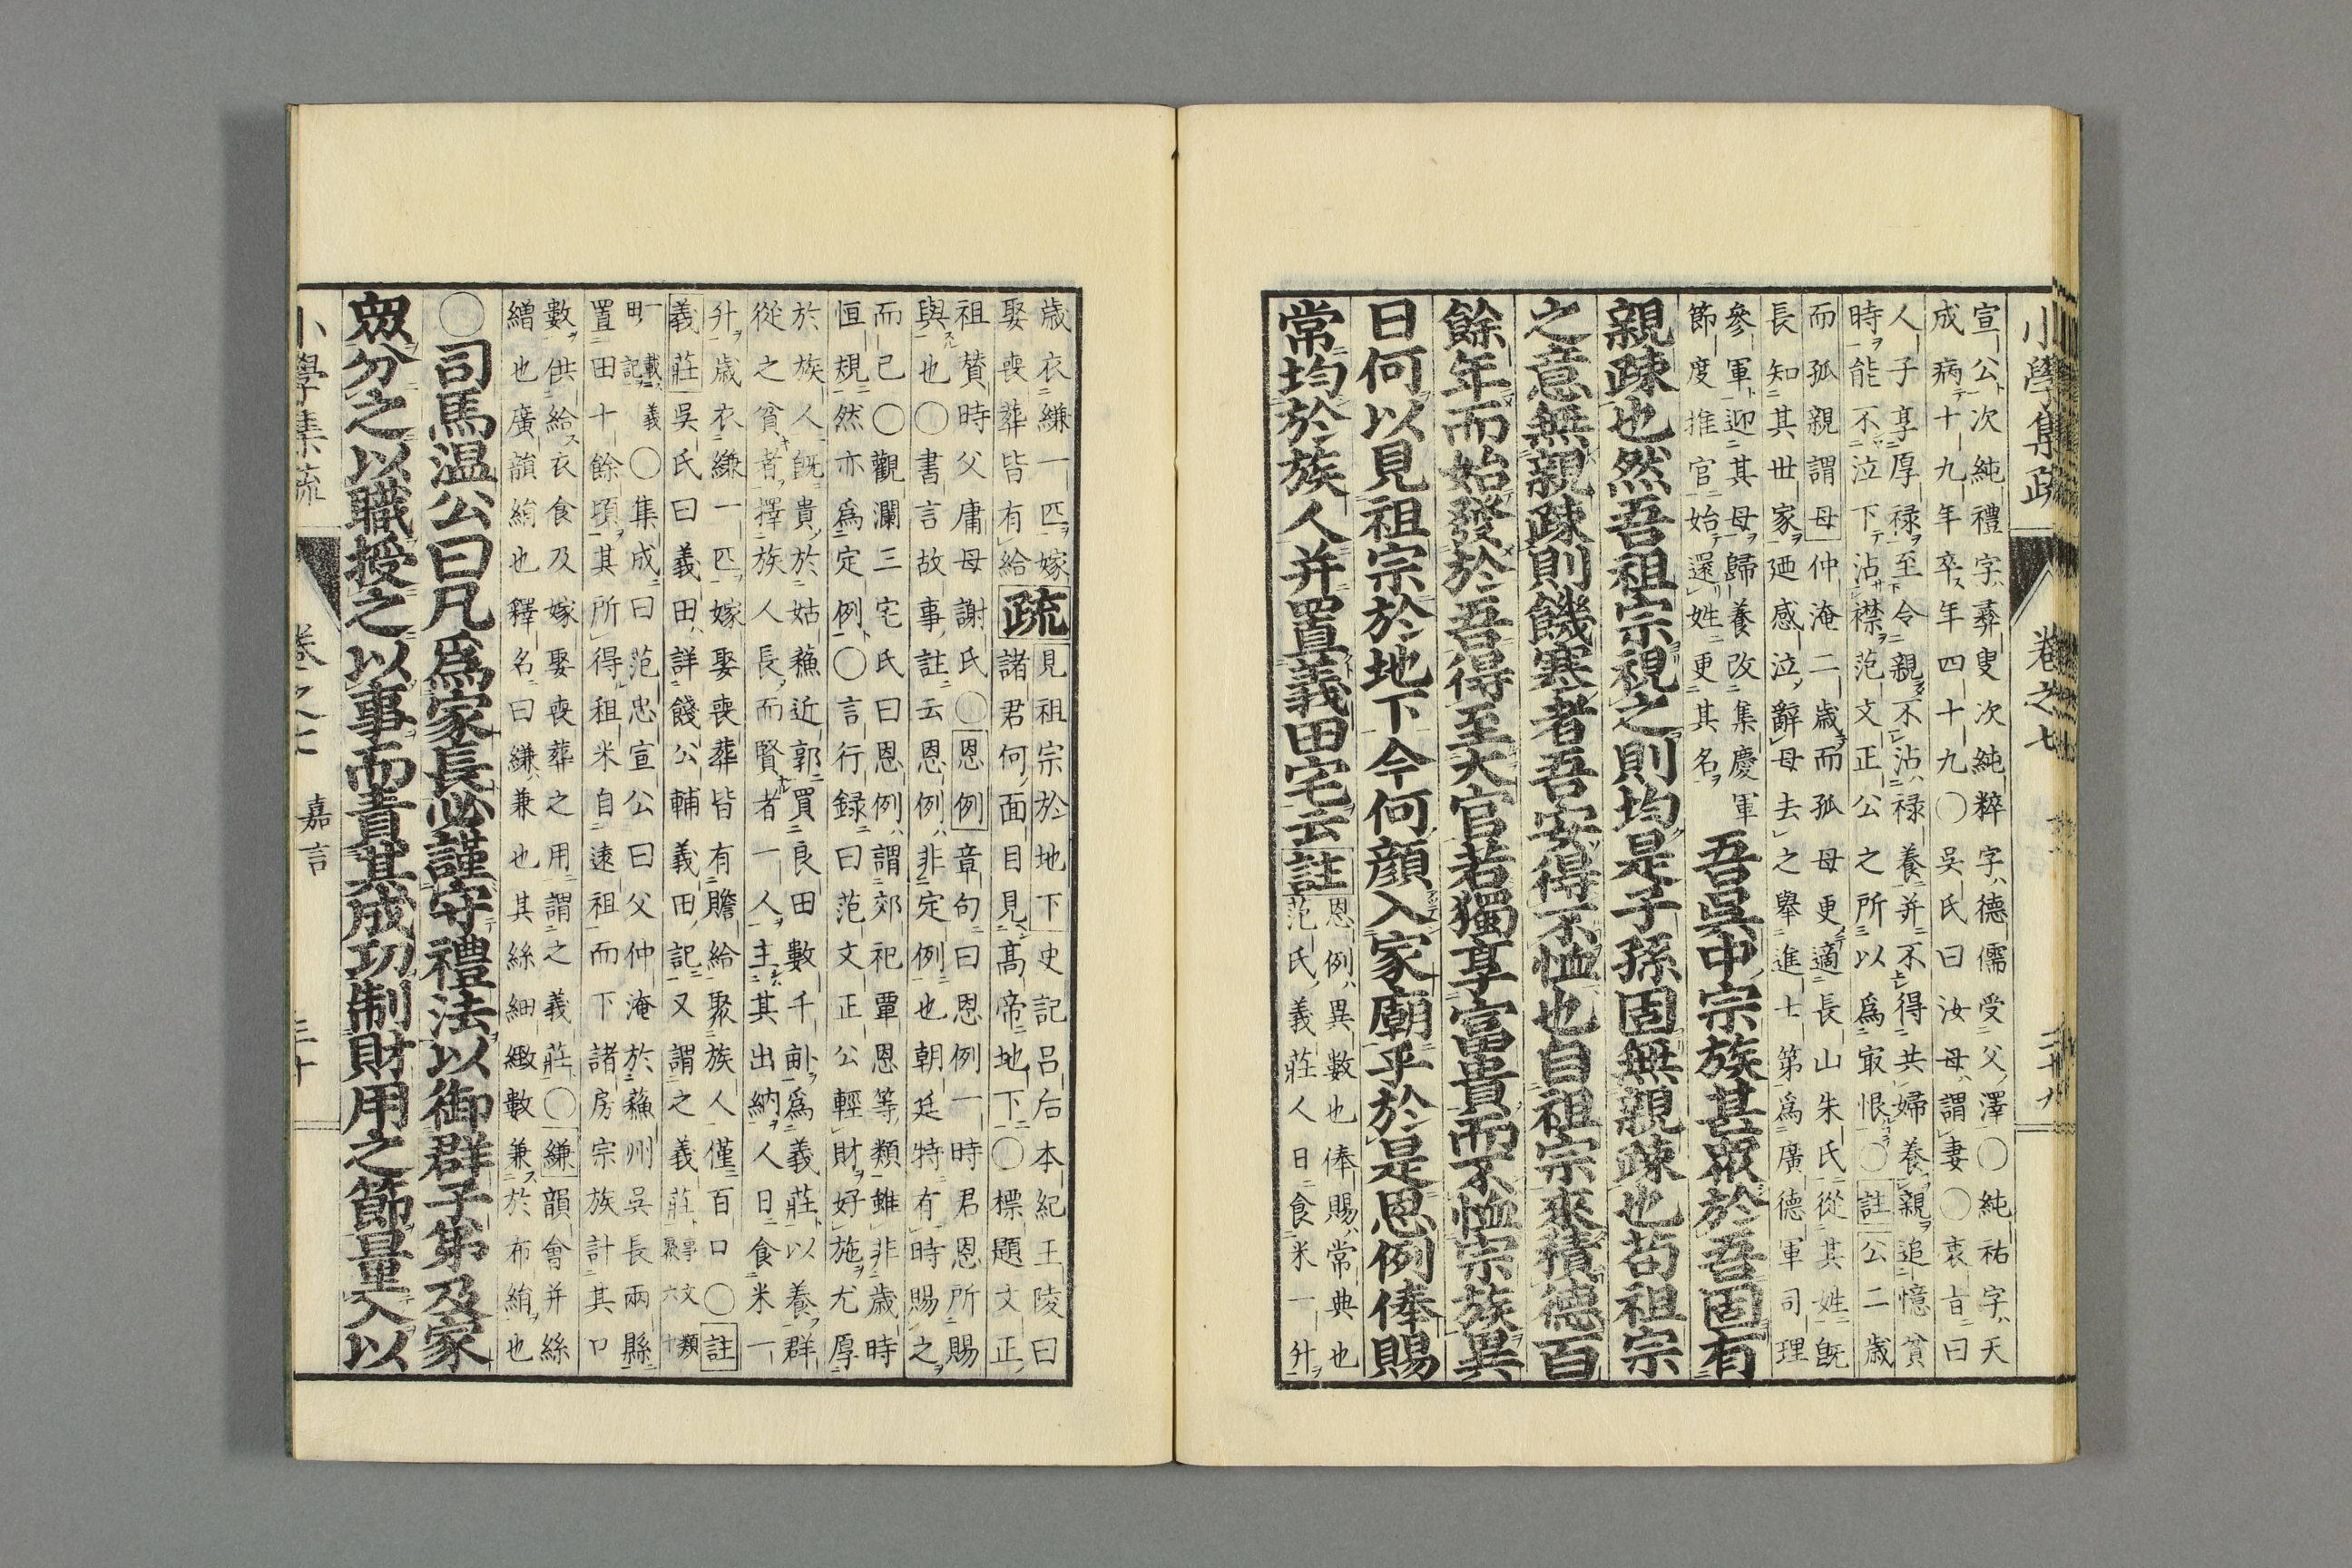 小學集疏 卷之七 二十九
宣公次純禮字彞叟次純粹字德儒受父澤○純祐字天
成病十九年卒年四十九○吳氏曰汝母謂妻○衷旨曰
人子享厚禄至令親不沾禄養并不得共婦養親追憶貧
時能不泣下沾襟范文正公之所以爲㝡恨○註公二歳
而孤親謂母仲淹二歳而孤母更適長山朱氏從其姓旣
長知其世家廼感泣辭母去之舉進士第爲廣德軍司理
參軍迎其母歸養改集慶軍
節度推官始還姓更其名
吾吳中宗族甚衆於吾固有
親疎也然吾祖宗視之則均是子孫固無親疎也苟祖宗
之意無親疎則饑寒者吾安得不恤也自祖宗來積德百
餘年而始發於吾得至大官若獨享富貴而不恤宗族異
日何以見祖宗於地下今何顔入家廟乎於是恩例俸賜
常均於族人并置義田宅云註
恩例異數也俸賜常典也
范氏義莊人日食米一升
歳衣縑一匹嫁
娶喪葬皆有給
疏
見祖宗於地下史記呂后本紀王陵曰
諸君何面目見高帝地下○標題文正
祖贊時父庸母謝氏○恩例章句曰恩例一時君恩所賜
與也○書言故事註云恩例非定例也朝廷特有時賜之
而已○觀瀾三宅氏曰恩例謂郊祀覃恩等類雖非歳時
恒規然亦爲定例○言行録曰范文正公輕財好施尤厚
於族人旣貴於姑蘓近郭買良田數千畝爲義莊以養群
從之貧者擇族人長而賢者一人主其出納人日食米一
升歳衣縑一匹嫁娶喪葬皆有贍給聚族人僅百口○註
義莊吳氏曰義田詳餞公輔義田記又謂之義莊事文類聚六十
一載義田記○集成曰范忠宣公曰父仲淹於蘓州吳長兩縣
置田十餘頃其所得租米自遠祖而下諸房宗族計其口
數供給衣食及嫁娶喪葬之用謂之義莊○縑韻會并絲
繒也廣韻絹也釋名曰縑兼也其絲細緻數兼於布絹也
○司馬温公曰凡爲家長必謹守禮法以御群子弟及家
衆分之以職授之以事而責其成功制財用之節量入以
小學集疏 卷之七 嘉言 三十